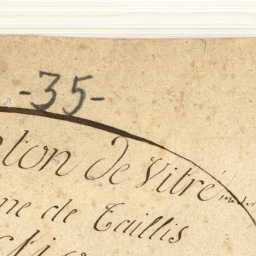 -35-
nton de Vitré
ne de Taillis